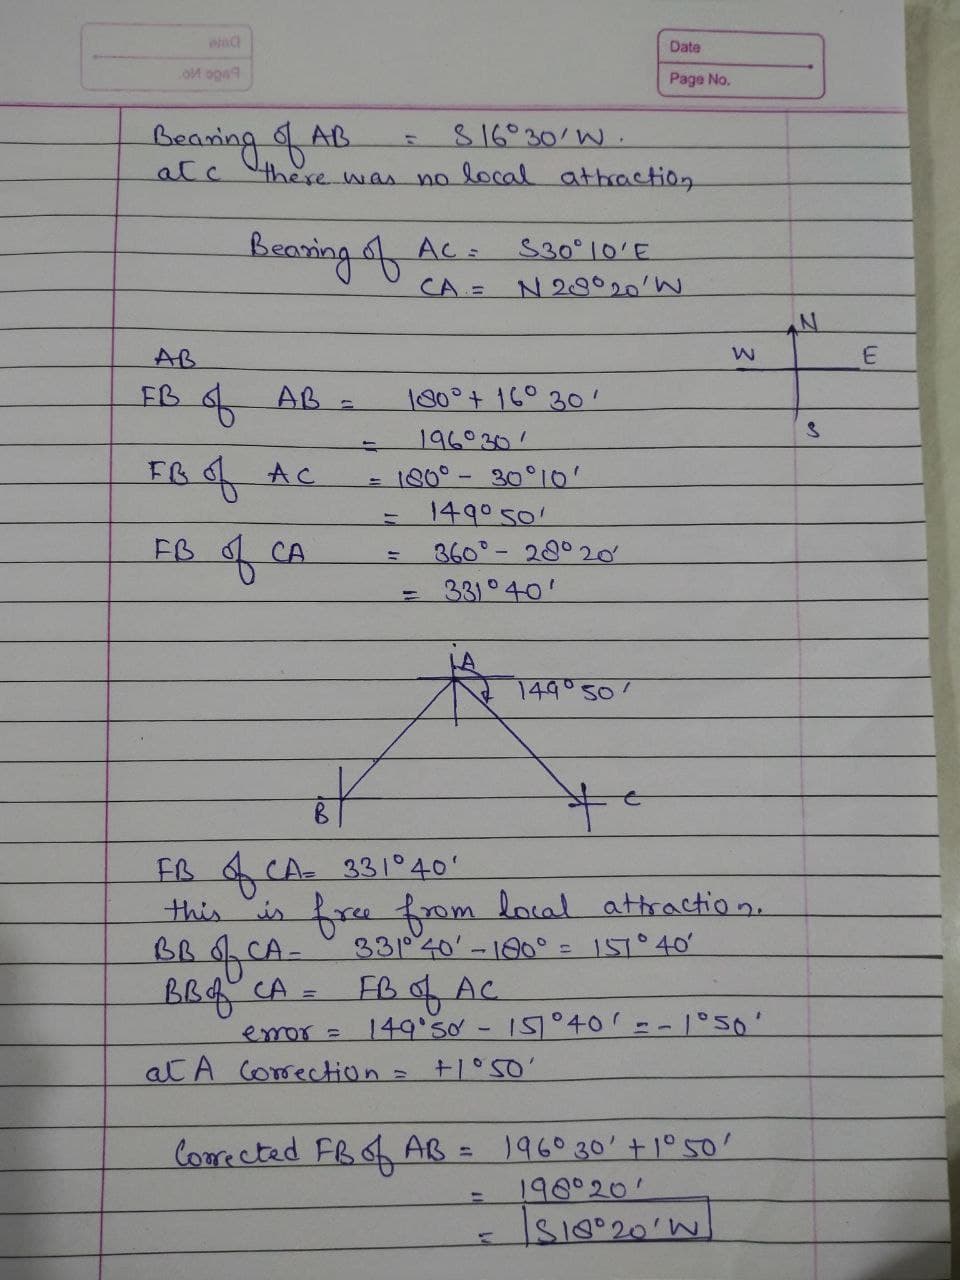 Date
Page No.
Bearing of AB = S16°30'W.
at c there was no local attraction
Bearing of AC = S30°10'E
CA = N28°20'W
N
W E
S
AB
FB of AB = 180° + 16° 30'
= 196°30'
FB of AC = 180° - 30°10'
= 149°50'
FB of CA = 360° - 28°20'
= 331°40'
A
149°50'
B C
FB of CA = 331°40'
this is free from local attraction.
BB of CA = 331°40' - 180° = 151°40'
BB of CA = FB of AC
error = 149°50' - 151°40' = -1°50'
at A Correction = +1°50'
Corrected FB of AB = 196°30' + 1°50'
= 198°20'
= S18°20'W